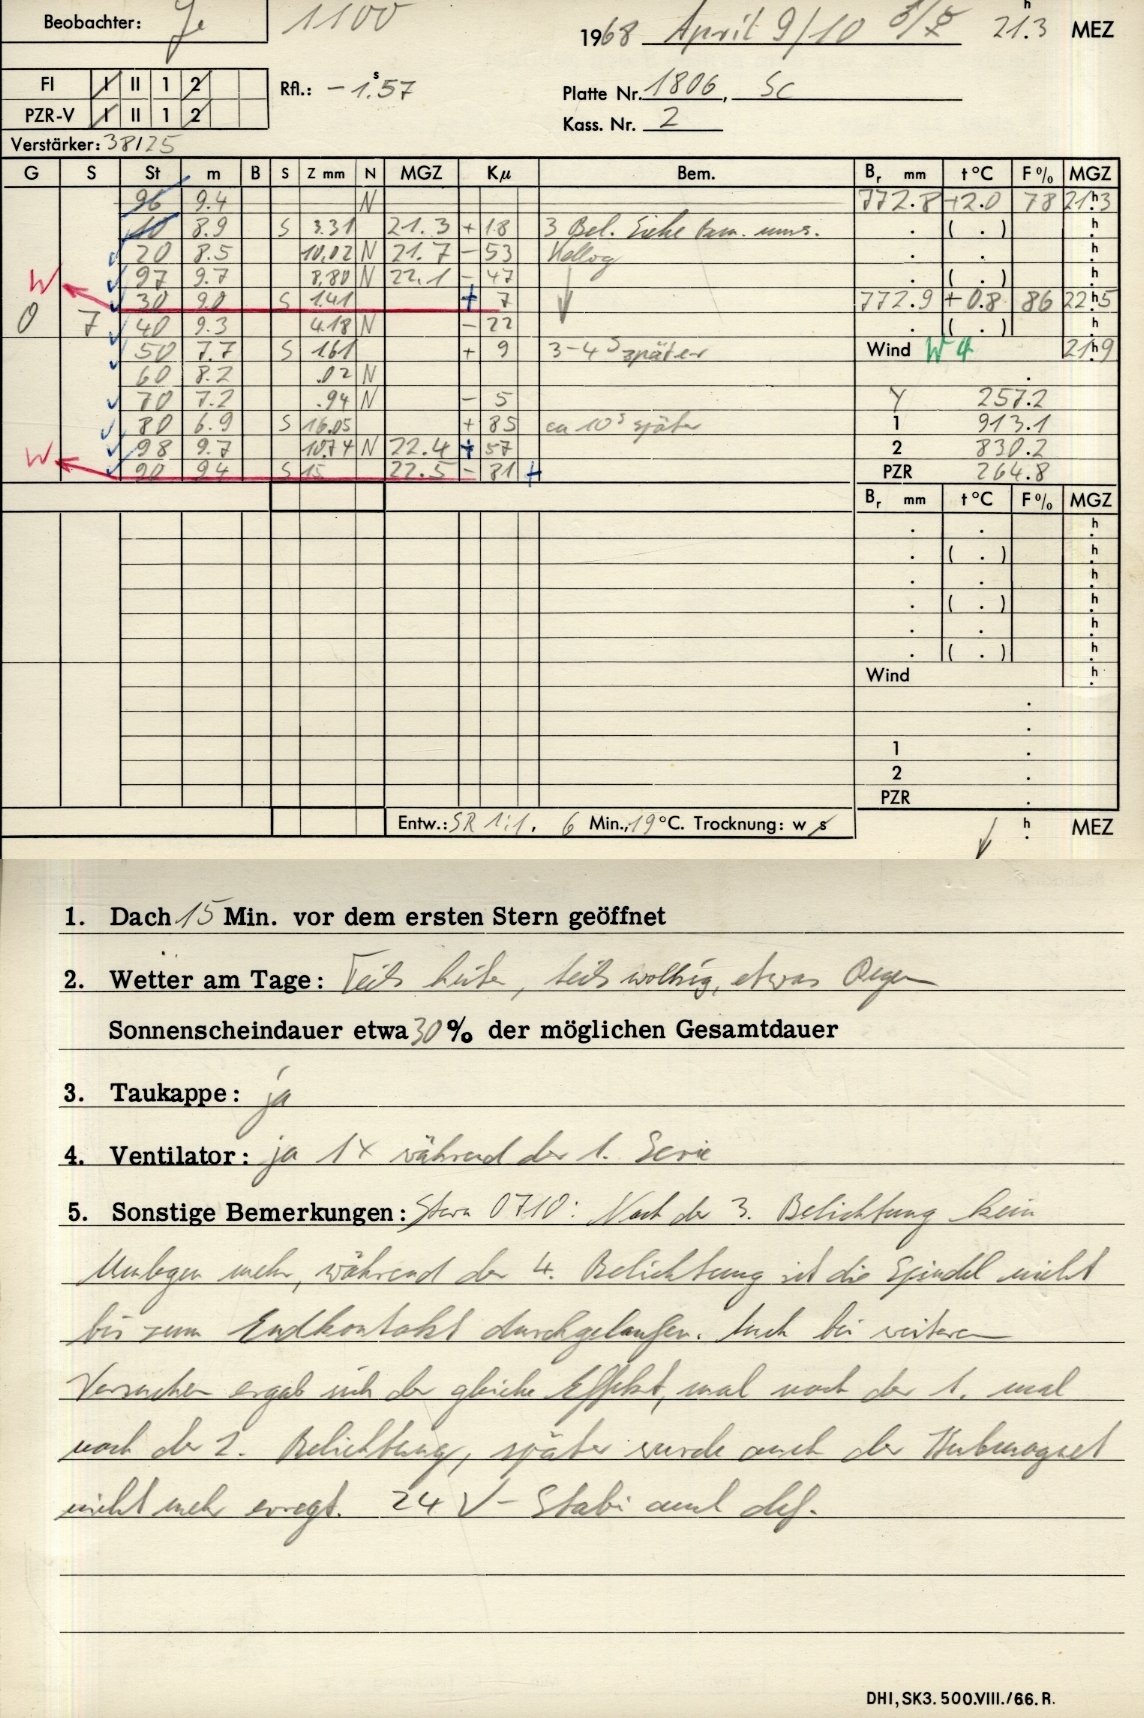 Beobachter: Je 1100 1968 April 9/10 21.3 h MEZ
FI I II 1 2 Rfl.: -1.57 s Platte Nr. 1806, Sc
PZR-V I II 1 2 Kass. Nr. 2
Verstärker: 38125
G S St m B S Z mm N MGZ Kμ Bem. Br mm t °C F % MGZ
96 9.4 N 772.8 +2.0 78 21h3
10 8.9 S 3.31 21.3 + 18 3 Bel. Siehe Bem. ums. . ( . ) h
20 8.5 10.02 N 21.7 - 53 . . h
W 97 9.7 8.80 N 22.1 - 47 . ( . ) h
30 9.0 S 1.41 + 7 772.9 +0.8 86 22h5
0 7 40 9.3 4.18 N - 22 . ( . ) h
50 7.7 S 1.61 + 9 3-4 s später Wind W 4 21h9
60 8.2 .02 N .
70 7.2 .94 N - 5 Y 257.2
80 6.9 S 16.05 + 85 ca 10 s später 1 913.1
W 98 9.7 10.74 N 22.4 + 57 2 830.2
90 9.4 S 15 22.5 - 81 + PZR 264.8
Br mm t °C F % MGZ
. . h
. ( . ) h
. . h
. ( . ) h
. . h
. ( . ) h
Wind h
.
.
1 .
2 .
PZR .
Entw.: SR 1:1, 6 Min., 19 °C. Trocknung: w s h MEZ
1. Dach 15 Min. vor dem ersten Stern geöffnet
2. Wetter am Tage: Teils heiter, teils wolkig, etwas Regen
Sonnenscheindauer etwa 30 % der möglichen Gesamtdauer
3. Taukappe: ja
4. Ventilator: ja 1x während der 1. Serie
5. Sonstige Bemerkungen: Stern 0710: Nach der 3. Belichtung kein
Umlegen mehr, während der 4. Belichtung ist die Spindel nicht
bis zum Endkontakt durchgelaufen. Auch bei weiteren
Versuchen ergab sich der gleiche Effekt, mal nach der 1. mal
nach der 2. Belichtung, später wurde auch der Hubmagnet
nicht mehr erregt. 24 V-Stabi def.
DHI, SK3. 500.VIII./66. R.